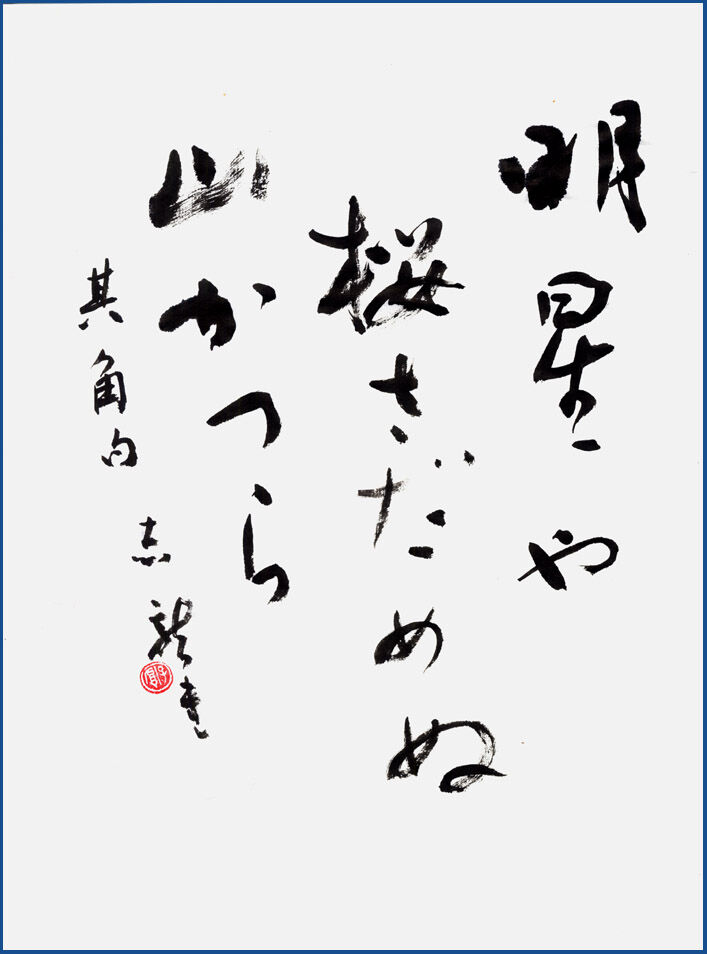 明星や
桜さだめぬ
山かつら
其角句
志龍書